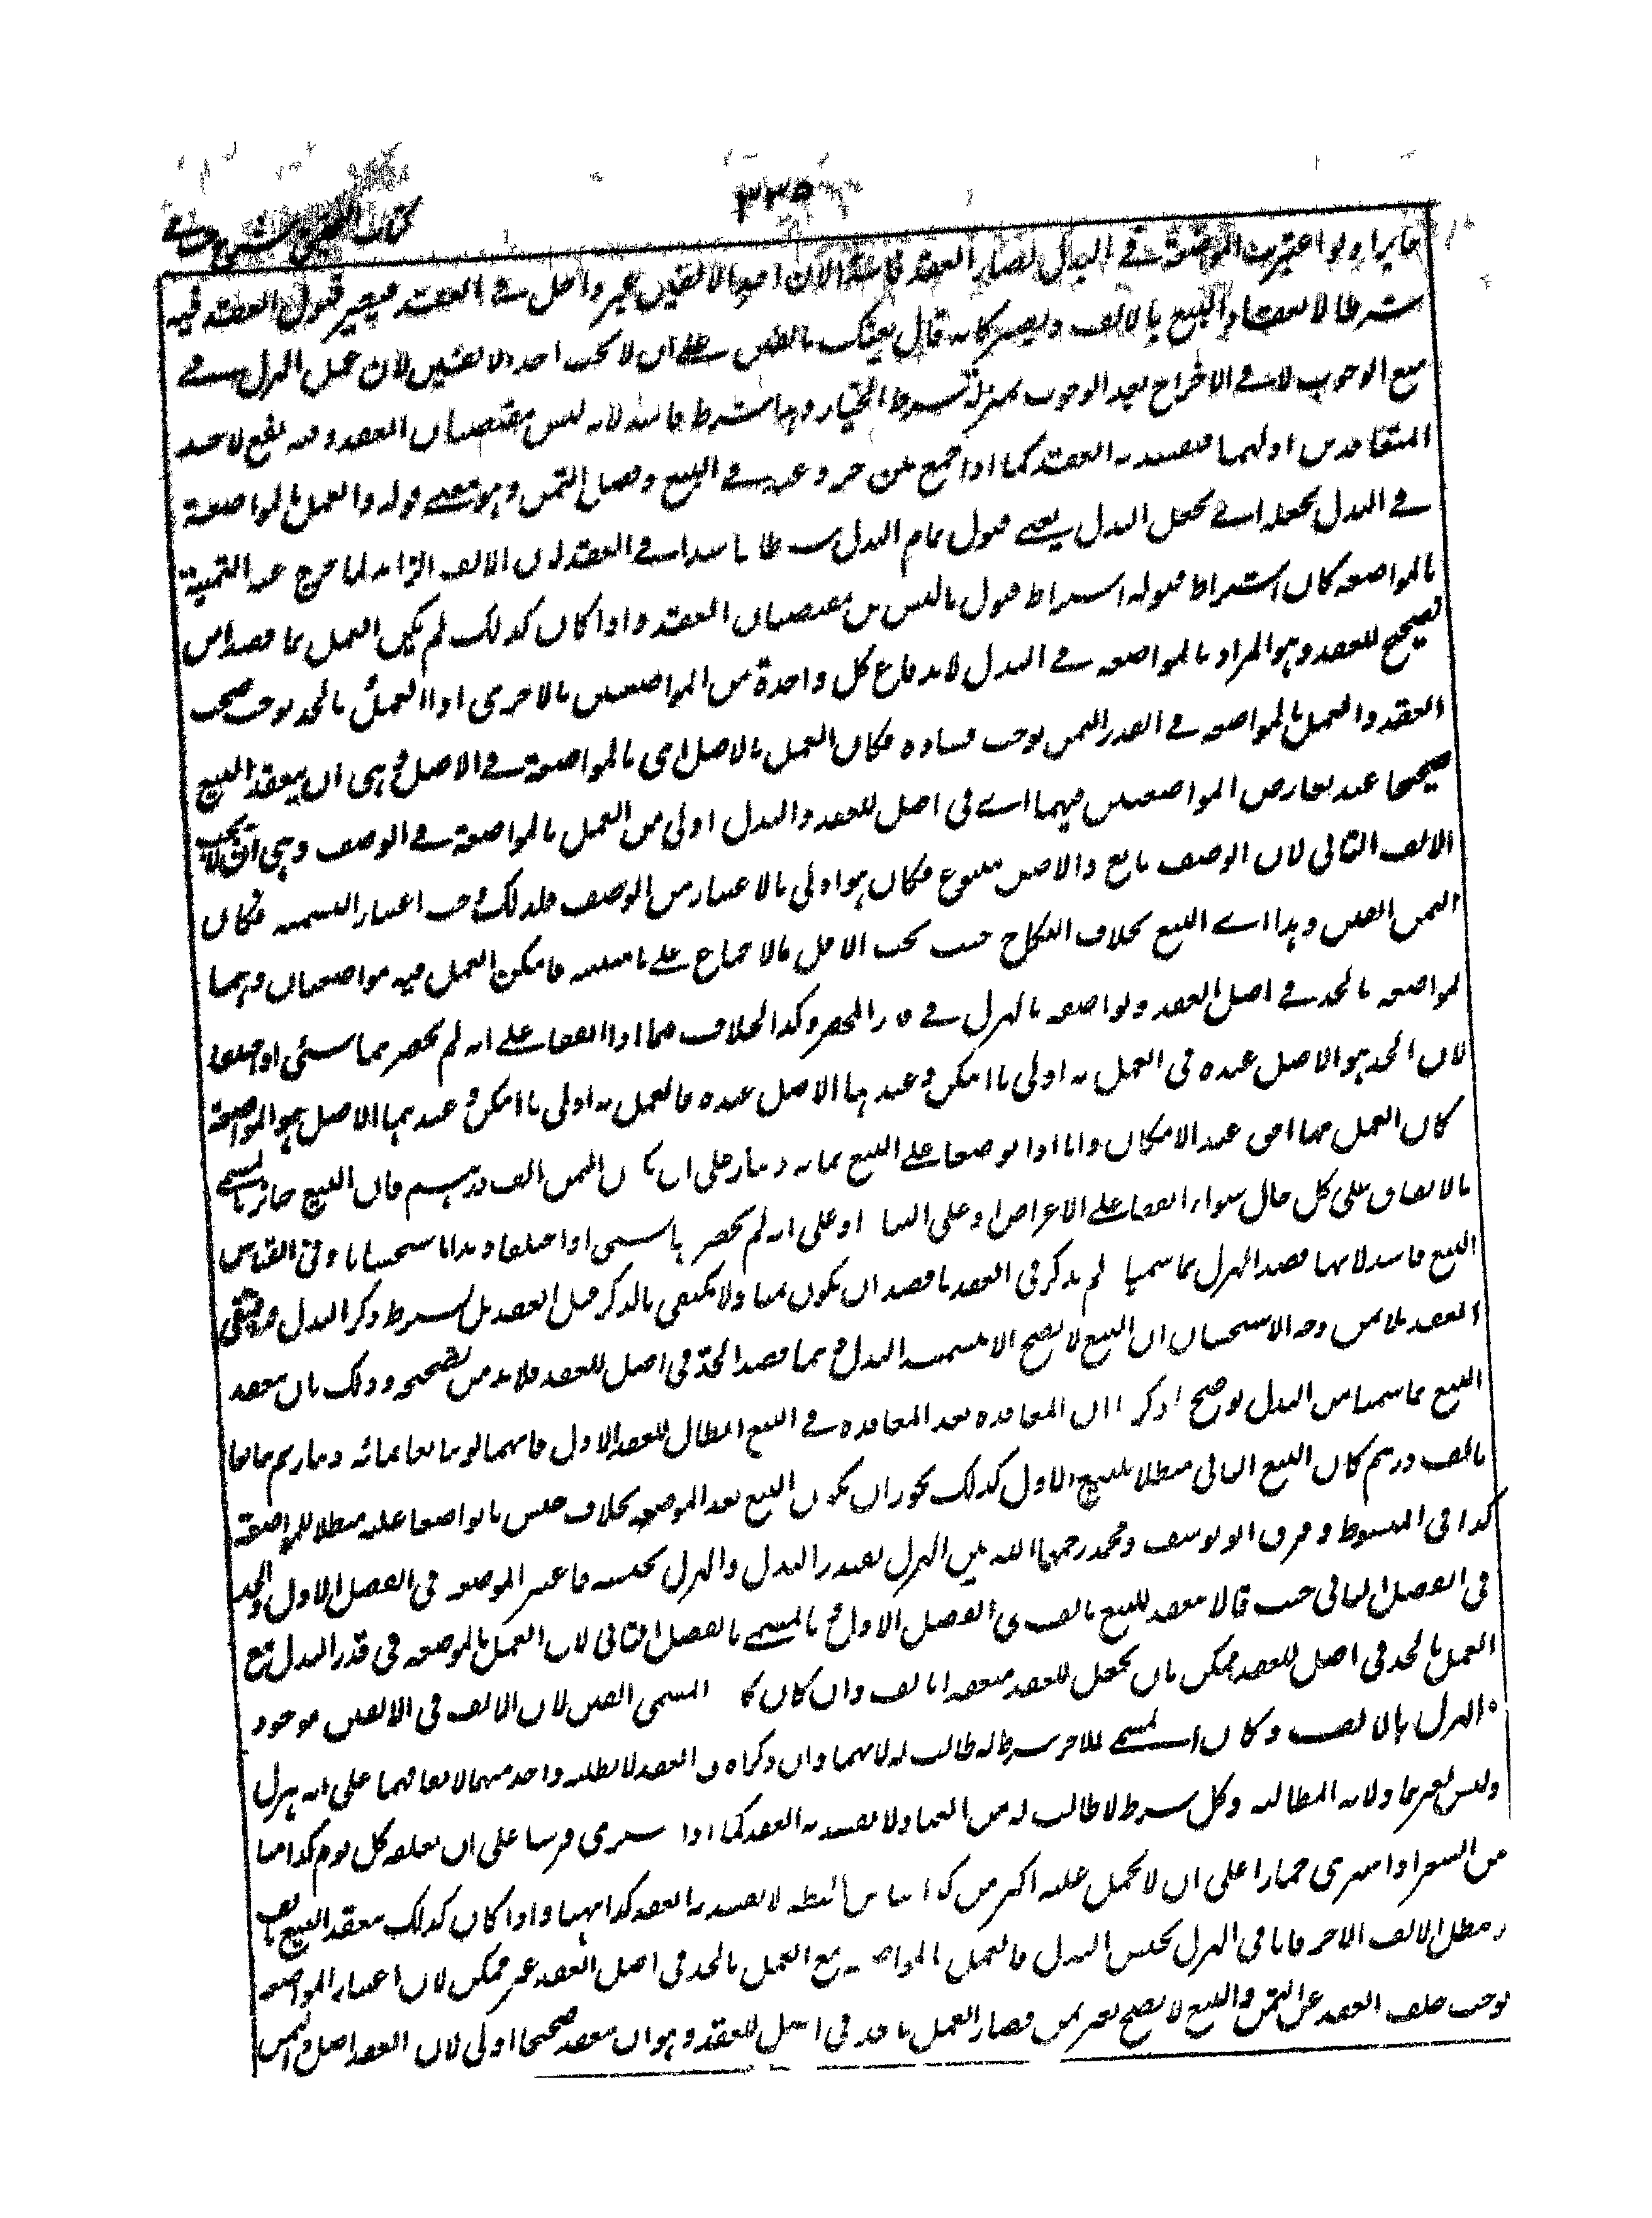 ٣٣٥
كتاب التحقيق شرح حسامي
جائزا ولو اعتبرت المواضعة في البدل لصار العقد فاسدا لان احد الالفين غير داخل في العقد فيصير قبول العقد فيه
شرطا لانعقاد البيع بالالف ويصير كانه قال بعتك بالفين على ان لا يجب احد الالفين لان عمل الهزل في
منع الوجوب لا في الاخراج بعد الوجوب بمنزلة شرط الخيار وهذا شرط فاسد لانه ليس من مقتضيات العقد وفيه نفع لاحد
المتعاقدين اولهما فيفسد به العقد كما اذا جمع بين حر وعبد في البيع وفصل الثمن وهو معنى قوله والعمل بالمواضعة
في البدل يجعله اي يجعل البدل يعني قبول تمام البدل شرطا فاسدا في العقد لان الالف الزائد لما خرج عن الثمنية
بالمواضعة كان اشتراط قبوله اشتراط قبول ما ليس من مقتضيات العقد واذا كان كذلك لم يكن العمل بما قصدا من
تصحيح العقد وهو المراد بالمواضعة في البدل لاندفاع كل واحدة من المواضعتين بالاخرى اذ العمل بالجد يوجب صحة
العقد والعمل بالمواضعة في القدر الثمن يوجب فساده فكان العمل بالاصل اي بالمواضعة في الاصل وهي ان ينعقد البيع
صحيحا عند تعارض المواضعتين فيهما اي في اصل العقد والبدل اولى من العمل بالمواضعة في الوصف وهي ان لا يجب
الالف الثاني لان الوصف تابع والاصل متبوع فكان هو اولى بالاعتبار من الوصف فلذلك وجب اعتبار التسمية فكان
الثمن الفين وهذا اي البيع بخلاف النكاح حيث يجب الاقل بالاجماع على ما نبينه فامكن العمل فيه مواضعتان فيهما
لمواضعة بالجد في اصل العقد ولمواضعة بالهزل في قدر المهر وكذا الخلاف فيما اذا اتفقا على انه لم يحضرهما شيء او اختلفا
لان الجد هو الاصل عنده في العمل به اولى ما امكن وعندهما الاصل عنده فالعمل به اولى ما امكن وعندهما الاصل هو المواضعة
كان العمل بهما احق عند الامكان واما اذا تواضعا على البيع بمائة دينار على ان يكون الثمن الف درهم فان البيع جائز بالمسمى
بالاتفاق على كل حال سواء اتفقا على الاعراض او على البناء او على انه لم يحضرهما شيء او اختلفا وهذا استحسانا وفي القياس
البيع فاسد لانهما قصدا الهزل بما سميا ولم يذكر في العقد ما قصدا ان يكون ثمنا ولا يكتفى بالذكر قبل العقد بل يشترط ذكر البدل فيبقى
العقد بلا ثمن وجه الاستحسان ان البيع لا يصح الا بتسمية البدل وهما قصدا الجد في اصل العقد فلا بد من تصحيحه وذلك بان ينعقد
البيع بما سميا من البدل توضيحه ذكر ان المعاقدة بعد المعاقدة في البيع ابطال للعقد الاول فانهما لو تبايعا بمائة دينار ثم تبايعا
بالف درهم كان البيع الثاني مبطلا للبيع الاول كذلك يجوز ان يكون البيع بعد المواضعة بخلاف جنس ما تواضعا عليه مبطلا للمواضعة
كذا في المبسوط وفرق ابو يوسف ومحمد رحمهما الله بين الهزل بقدر البدل والهزل بجنسه فاعتبر المواضعة في الفصل الاول والجد
في الفصل الثاني حيث قالا ينعقد البيع بالف في الفصل الاول وبالمسمى بالفصل الثاني لان العمل بالمواضعة في قدر البدل مع
العمل بالجد في اصل العقد ممكن بان يجعل العقد منعقدا بالف وان كان المسمى الفين لان الالف في الالفين موجود
والهزل بالالف وكان المسمى للاخر شرطا لا طالب له لانهما وان ذكراه في العقد لا يطلبه واحد منهما لاتفاقهما على انه هزل
وليس لغيرهما ولاية المطالبة وكل شرط لا طالب له من العباد لا يفسد به العقد كما اذا اشترى فرسا على ان يعلفه كل يوم كذا منا
من الشعير او اشترى حمارا على ان لا يحمل عليه اكثر من كذا منا من الحنطة لا يفسد به العقد كذا ههنا واذا كان كذلك ينعقد البيع بالف
ويبطل الالف الاخر فاما في الهزل بجنس البدل فالعمل بالمواضعة مع العمل بالجد في اصل العقد غير ممكن لان اعتبار المواضعة
يوجب خلو العقد عن الثمن والبيع لا يصح بغير ثمن فصار العمل بالجد في اصل العقد وهو ان ينعقد صحيحا اولى لان العقد اصل والثمن